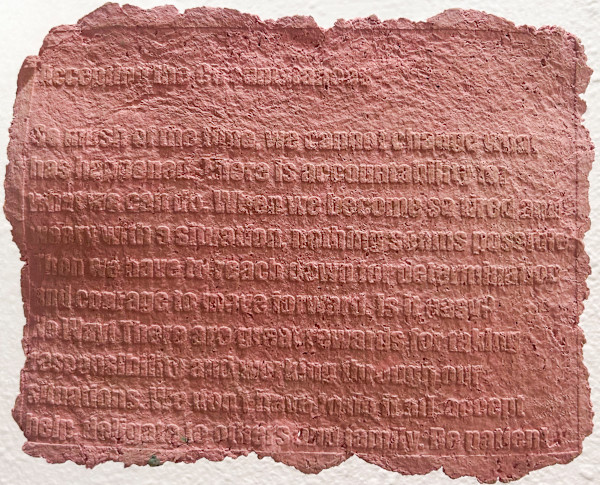 Accepting the Circumstances
So most of the time, we cannot change what
has happened. There is accountability in
what we can do. When we become so tired and
weary with a situation, nothing seems possible
Then we have to reach down for determination
and courage to move forward. Is it easy?
No Way! There are great rewards for taking
responsibility and working through our
situations. We don't have it all, accept
help, deligate to others and family. Be patient